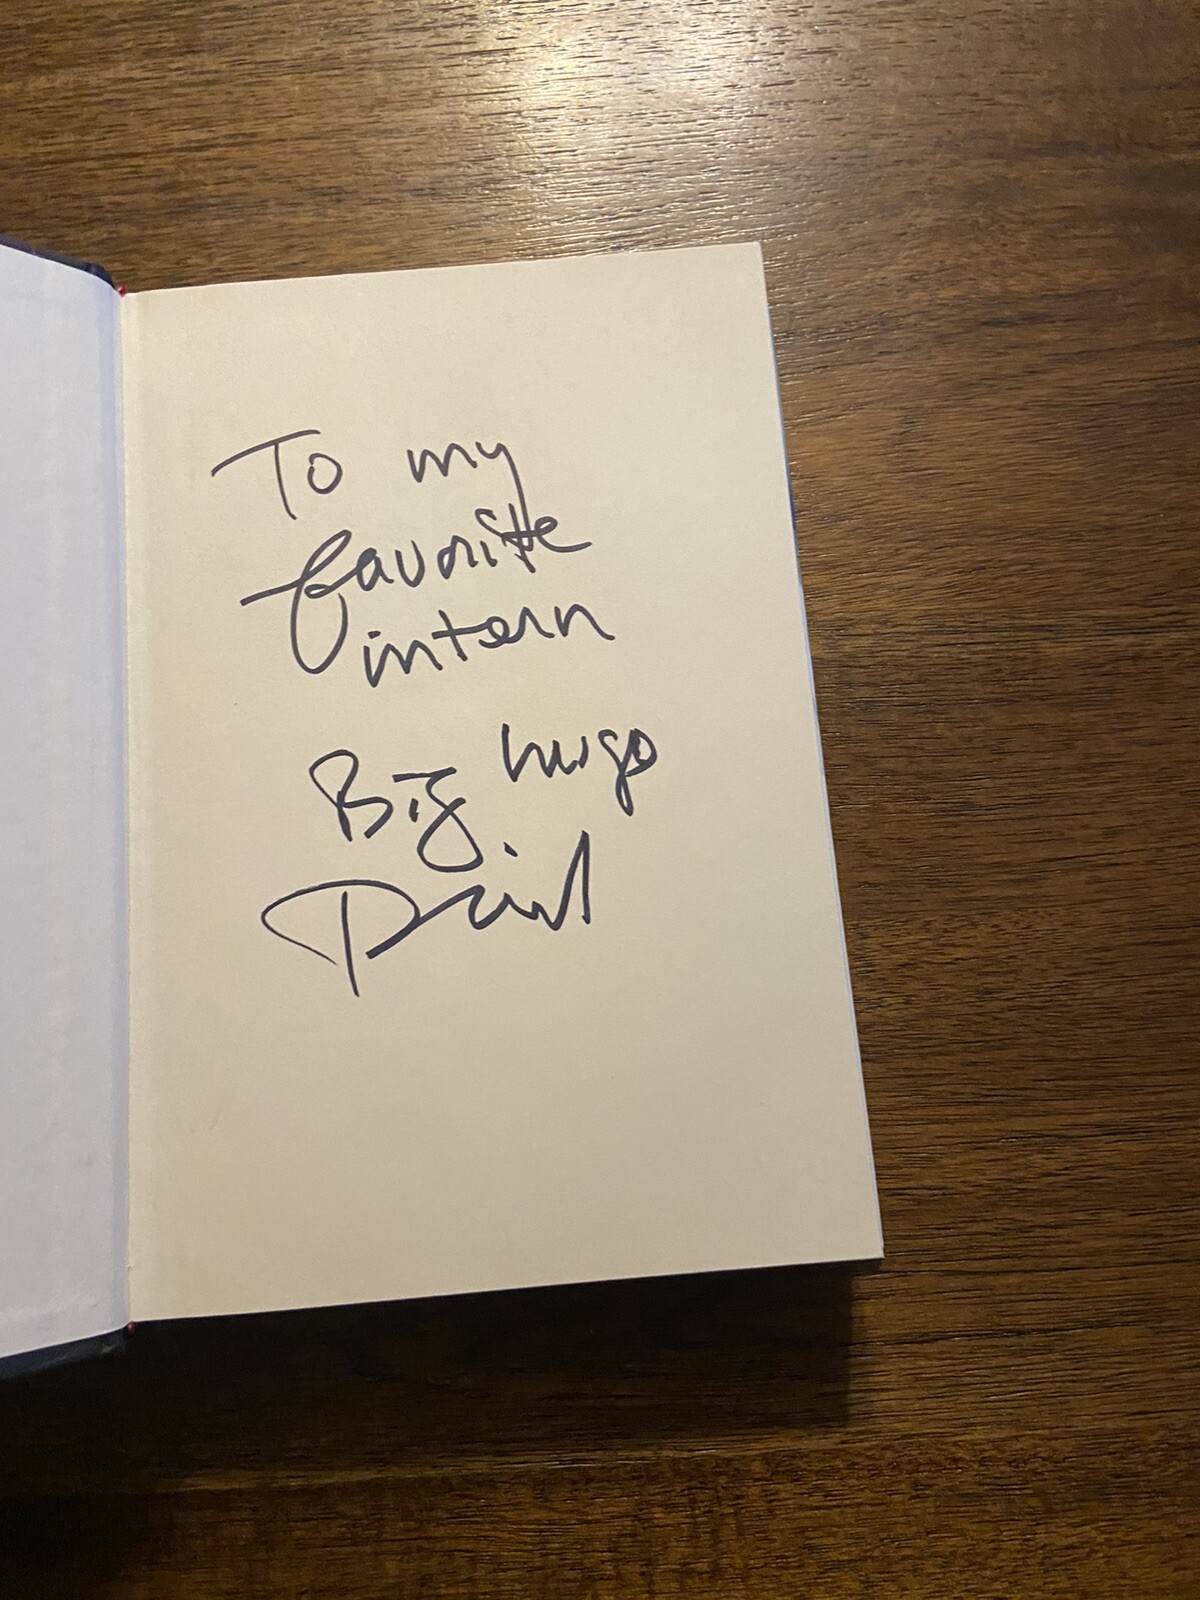 To my
favorite
intern
Big hugs
David